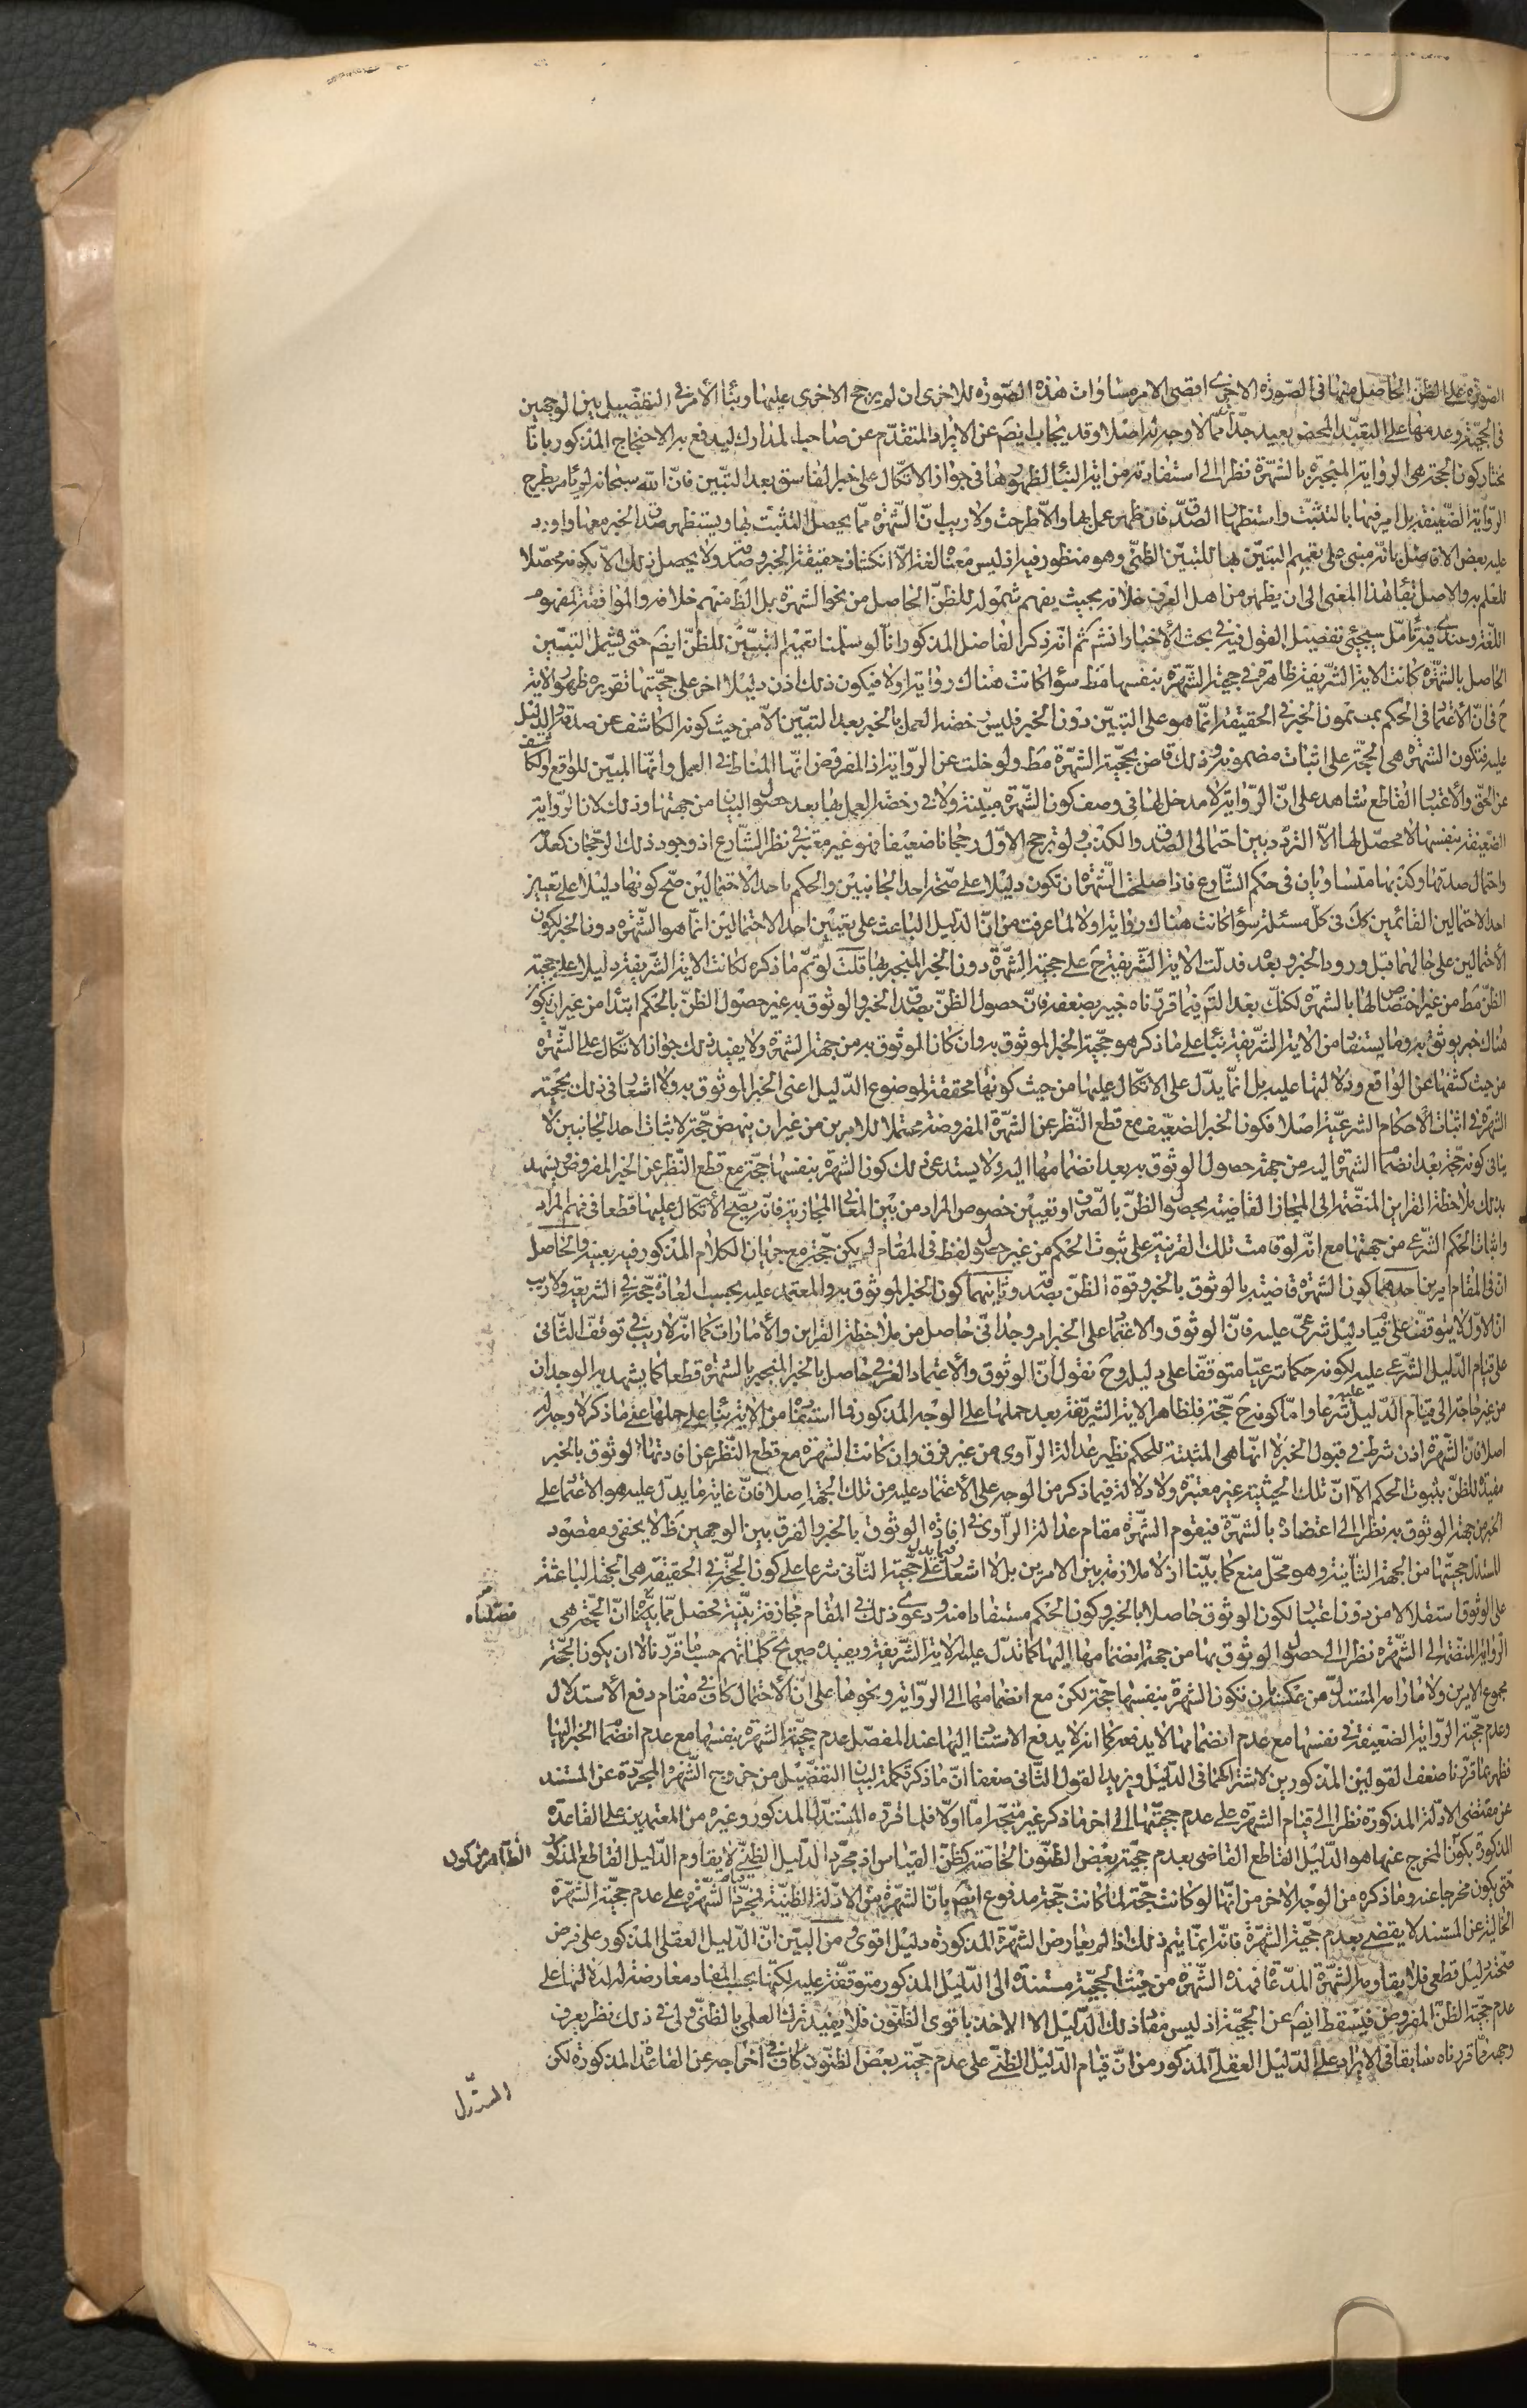 الصورة على الظن الحاصل منها فى الصورة الاخرى اقصى الامر مساوات هذه الصورة للاخرى ان لم يرجح الاخرى عليها وبناء الامر فى التفصيل بين الوجهين
فى الحجية وعدمها على التعبد المحض بعيد جدا مما لا وجه له اصلا وقد يجاب ايضَ عن الايراد المتقدم عن صاحب المدارك ليدفع به الاحتجاج المذكور بانا
نختار كون الحجة هى الرواية المنجبرة بالشهرة نظرا الى استفادته من اية النبأ لظهورها فى جواز الاتكال على خبر الفاسق بعد التبين فان الله سبحانه لم يأمر بطرح
الرواية الضعيفة بل امر فيها بالتثبت واستظهار الصدق فان ظهر عمل بها والا طرحت ولا ريب ان الشهرة مما يحصل التثبت بها ويستظهر صدق الخبر معها واورد
عليه بعض الافاضل بانه مبنى على تعميم التبين لها للتبين الظنى وهو منظور فيه اذ ليس معناه لغة الا انكشاف حقيقة الخبر وصدقه ولا يحصل ذلك الا بكونه محصلا
للعلم به والاصل بقاء هذا المعنى الى ان يظهر من اهل العرف خلافه بحيث يفهم شموله للظن الحاصل من نحو الشهرة بل الظَ منهم خلافه والموافقة لمفهوم
اللغة وعندى فيه تأمل سيجئ تفصيل القول فيه فى بحث الاخبار انشَ ثم انه ذكر الفاضل المذكور انا لو سلمنا تعميم التبين للظن ايضَ حتى يشمل التبين
الحاصل بالشهرة كانت الاية الشريفة ظاهرة فى حجية الشهرة بنفسها مطَ سواء كانت هناك رواية او لا فيكون ذلك اذن دليلا اخر على حجيتها تقريره ظهور الاية
حَ فى ان الاعتماد فى الحكم بمضمون الخبر فى الحقيقة انما هو على التبين دون الخبر فليس رخصة العمل بالخبر بعد التبين الا من حيث كونه الكاشف عن صدقه والدليل
عليه فتكون الشهرة هى الحجة على اثبات مضمونه وذلك قاض بحجية الشهرة مطَ ولو خلت عن الرواية اذ المفروض انها المناط فى العمل وانها المبين للواقع والكاشف
عن الحق والاعتبار القاطع شاهد على ان الرواية لا مدخل لها فى وصف كون الشهرة مبينة ولا فى رخصة العمل بها بعد حصول البيان من جهتها وذلك لان الرواية
الضعيفة بنفسها لا محصل لها الا التردد بين احتمالى الصدق والكذب ولو ترجح الاول رجحانا ضعيفا فهو غير معتبر فى نظر الشارع اذ وجود ذلك الرجحان كعدمه
واحتمال صدقها وكذبها متساويان فى حكم الشارع فاذا صلحت الشهرة ان تكون دليلا على صحة احد الجانبين والحكم باحد الاحتمالين صح كونها دليلا على تعيين
احد الاحتمالين القائمين كلَ فى كل مسئلة سواء كانت هناك رواية او لا لما عرفت من ان الدليل الباعث على تعيين احد الاحتمالين انما هو الشهرة دون الخبر لكون
الاحتمالين على حالهما قبل ورود الخبر وبعده فدلت الاية الشريفة حَ على حجية الشهرة دون الخبر المنجبر بها قلت لو تم ما ذكره لكانت الاية الشريفة دليلا على حجية
الظن مطَ من غير اختصاص لها بالشهرة لكنك بعد التأمل فيما قررناه خبير بضعفه فان حصول الظن بصدق الخبر والوثوق به غير حصول الظن بالحكم ابتداء من غير ان يكون
هناك خبر يوثق به وما يستفاد من الاية الشريفة بناء على ما ذكر هو حجية الخبر الموثوق به وان كان الموثوق به من جهة الشهرة ولا يفيد ذلك جواز الاتكال على الشهرة
من حيث كشفها عن الواقع ودلالتها عليه بل انما يدل على الاتكال عليها من حيث كونها محققة لموضوع الدليل اعنى الخبر الموثوق به ولا اشعار فى ذلك بحجية
الشهرة فى اثبات الاحكام الشرعية اصلا فكون الخبر الضعيف مع قطع النظر عن الشهرة المفروضة محتملا للامرين من غير ان ينهض حجة لاثبات احد الجانبين لا
ينافى كونه حجة بعد انضمام الشهرة اليه من جهة حصول الوثوق به بعد انضمامها اليه ولا يستدعى ذلك كون الشهرة بنفسها حجة مع قطع النظر عن الخبر المفروض يشهد
بذلك ملاحظة القراين المنضمة الى المجاز القاضية بحصول الظن بالصرف او تعيين خصوص المراد من بين المعانى المجازية فانه يصح الاتكال عليها قطعا فى فهم المراد
واثبات الحكم الشرعى من جهتها مع انه لو قامت تلك القرينة على ثبوت الحكم من غير حصول لفظ فى المقام لم يكن حجة مع جريان الكلام المذكور فيه بعينه والحاصل
ان فى المقام امرين احدهما كون الشهرة قاضية بالوثوق بالخبر وقوة الظن بصدقه وثانيهما كون الخبر الموثوق به والمعتمد عليه بحسب العادة حجة فى الشريعة ولا ريب
ان الاول لا يتوقف على قيام دليل شرعى عليه فان الوثوق والاعتماد على الخبر امر وجدانى حاصل من ملاحظة القراين والامارات كما انه لا ريب فى توقف الثانى
على قيام الدليل الشرعى عليه لكونه حكما شرعيا متوقفا على دليله وحَ نقول ان الوثوق والاعتماد العرفى حاصل بالخبر المنجبر بالشهرة قطعا كما يشهد به الوجدان
من غير حاجة الى قيام الدليل عليه شرعا واما كونه حَ حجة فلظاهر الاية الشريفة بعد حملها على الوجه المذكور فما استفادها من الاية بناء على حملها على ما ذكر لا وجه له
اصلا فان الشهرة اذن شرط فى قبول الخبر لا انها هى المثبتة للحكم نظير عدالة الراوى من غير فرق وان كانت الشهرة مع قطع النظر عن افادتها الوثوق بالخبر
مفيدة للظن بثبوت الحكم الا ان تلك الحيثية غير معتبرة ولا دلالة فيما ذكر من الوجه على الاعتماد عليه من تلك الجهة اصلا فان غاية ما يدل عليه هو الاعتماد على
الخبر من جهة الوثوق به نظرا الى اعتضاده بالشهرة فيقوم الشهرة مقام عدالة الراوى فى افادة الوثوق بالخبر والفرق بين الوجهين ظَ لا يخفى ومقصود
المستدل حجيتها من الجهة الثانية وهو محل منع كما بينا اذ لا ملازمة بين الامرين بل لا اشعار فيما يدل على حجية الثانى شرعا على كون الحجة فى الحقيقة هى الجهة الباعثة
على الوثوق استقلالا من دون اعتبار لكون الوثوق حاصلا بالخبر وكون الحكم مستفادا منه ودعوى ذلك فى المقام مجازفة بينة فحصل مما بيناه ان الحجة هى
الرواية المنضمة الى الشهرة نظرا الى حصول الوثوق بها من جهة انضمامها اليها كما تدل عليه الاية الشريفة ويفيده صريح كلماتهم حسبما قررنا لا ان يكون الحجة
مجموع الامرين ولا ما رامه المستدل من عكسه بان تكون الشهرة بنفسها حجة لكن مع انضمامها الى الرواية ونحوها على ان الاحتمال كاف فى مقام دفع الاستدلال
وعدم حجية الرواية الضعيفة فى نفسها مع عدم انضمامها لا يدفعه كما انه لا يدفع الاستناد اليها عند المفصل عدم حجية الشهرة بنفسها مع عدم انضمام الخبر اليها
فظهر بما قررنا ضعف القولين المذكورين لاشتراكهما فى الدليل ويزيد القول الثانى ضعفا ان ما ذكر تكملة لبيان التفصيل من خروج الشهرة المجردة عن المستند
عن مقتضى الادلة المذكورة نظرا الى قيام الشهرة على عدم حجيتها الى اخر ما ذكر غير متجه اما اولا فلما قرره المستدل المذكور وغيره من المعتمدين على القاعدة
المذكورة بكون المخرج عنها هو الدليل القاطع القاضى بعدم حجية بعض الظنون الخاصة كظن القياس اذ مجرد الدليل الظنى لا يقاوم الدليل القاطع المذكور
حتى يكون مخرجا عنه وما ذكره من الوجه الاخر من انها لو كانت حجة لما كانت حجة مدفوع ايضَ بان الشهرة من الادلة الظنية فمجرد قيام الشهرة على عدم حجية الشهرة
الخالية عن المستند لا يقضى بعدم حجية الشهرة فانه انما يتم ذلك اذا لم يعارض الشهرة المذكورة دليل اقوى ومن البين ان الدليل العقلى المذكور على فرض
صحته دليل قطعى فلا يقاومه الشهرة المدعاة فهذه الشهرة من حيث الحجية مستندة الى الدليل المذكور متوقفة عليه لكنها بحسب المفاد معارضة له لدلالتها على
عدم حجية الظن المفروض فيسقط ايضَ عن الحجية اذ ليس مفاد ذلك الدليل الا الاخذ باقوى الظنون فلا يفيد ترك العلمى بالظنى ولى فى ذلك نظر يعرف
وجهه مما قررناه سابقا فى الايراد على الدليل العقلى المذكور من ان قيام الدليل الظنى على عدم حجية بعض الظنون كاف فى اخراجه عن القاعدة المذكورة لكن
فصلناه
الظاهر من كون
المستدل